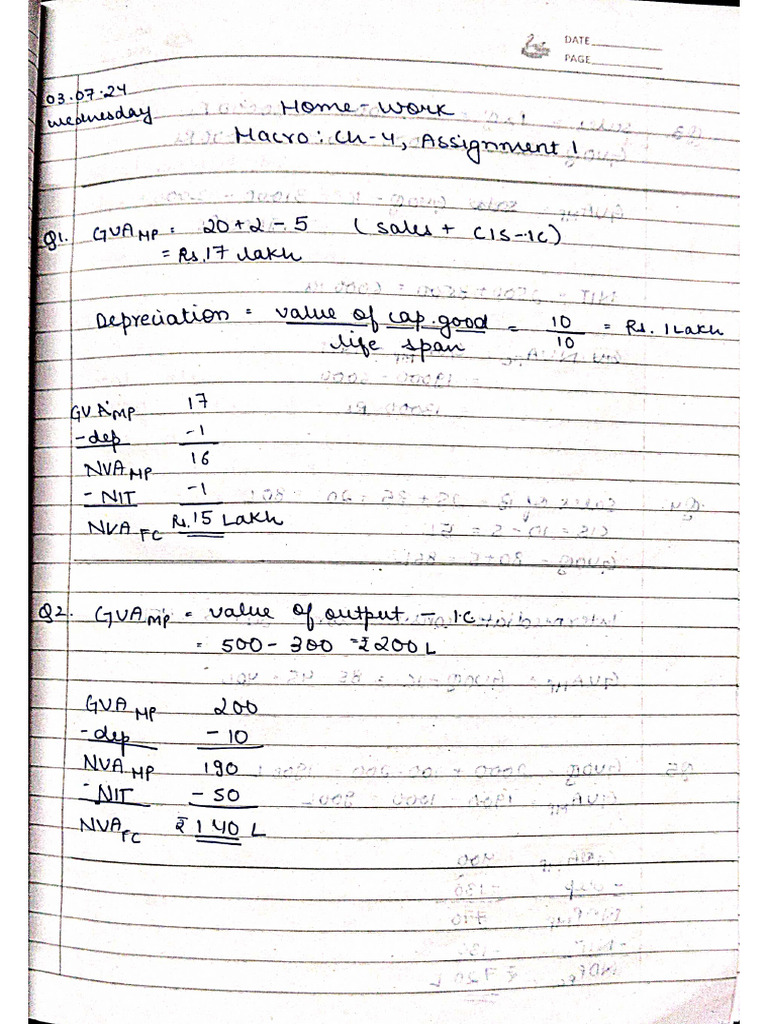 DATE
PAGE
03.07.24
Wednesday
Home-Work
Macro: Ch-4, Assignment 1
Q1. GVA MP = 20+2-5 (Sales + CIS-IC)
= Rs.17 lakh
Depreciation = value of cap.good / life span = 10/10 = Rs. 1 Lakh
GVA MP 17
-dep -1
NVA MP 16
- NIT -1
NVA FC Rs.15 Lakh
Q2. GVA MP = value of output - IC
= 500-300 = ₹200L
GVA MP 200
-dep -10
NVA MP 190
-NIT -50
NVA FC ₹140 L